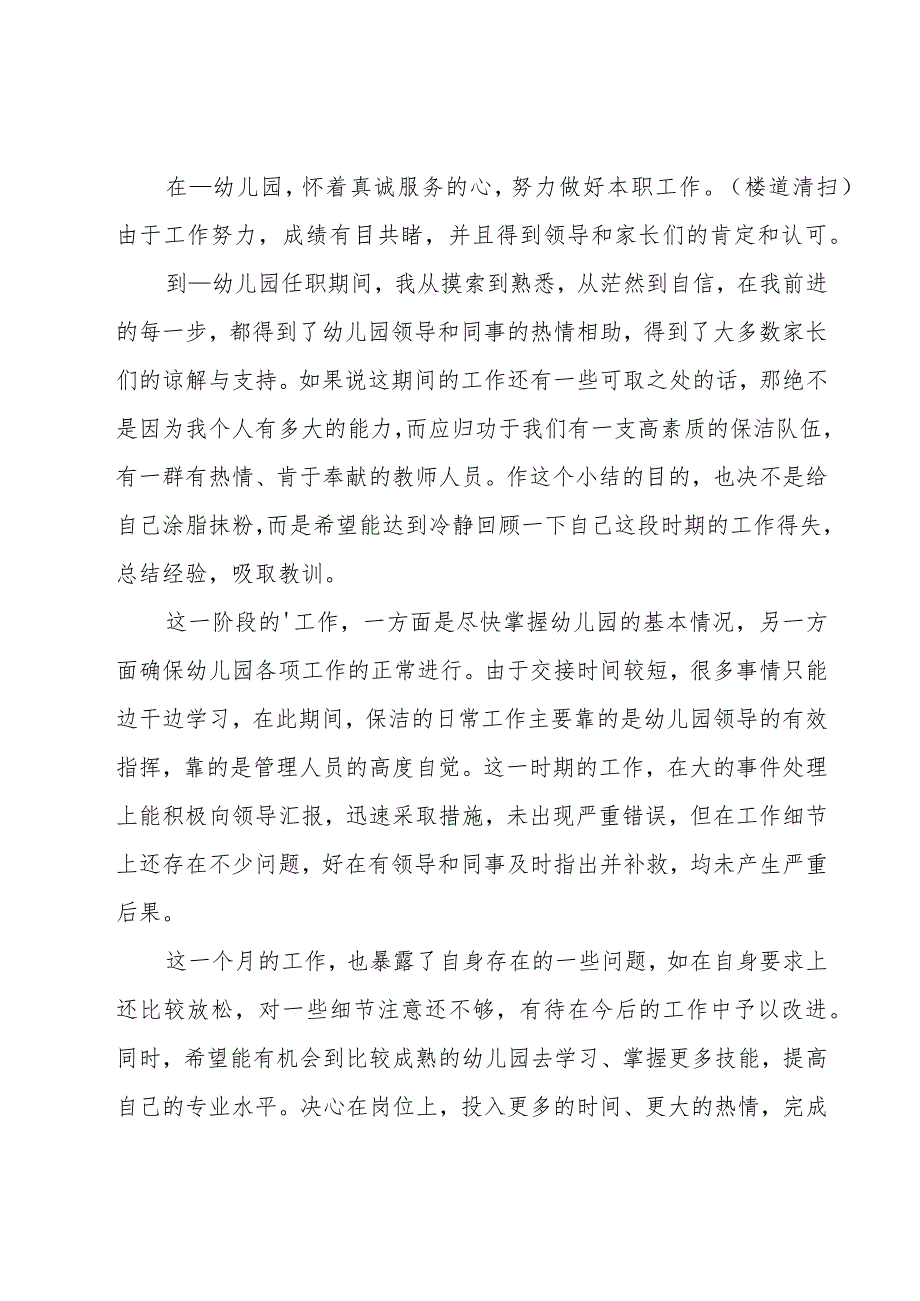 在—幼儿园，怀着真诚服务的心，努力做好本职工作。（楼道清扫）
由于工作努力，成绩有目共睹，并且得到领导和家长们的肯定和认可。
到—幼儿园任职期间，我从摸索到熟悉，从茫然到自信，在我前进
的每一步，都得到了幼儿园领导和同事的热情相助，得到了大多数家长
们的谅解与支持。如果说这期间的工作还有一些可取之处的话，那绝不
是因为我个人有多大的能力，而应归功于我们有一支高素质的保洁队伍，
有一群有热情、肯于奉献的教师人员。作这个小结的目的，也决不是给
自己涂脂抹粉，而是希望能达到冷静回顾一下自己这段时期的工作得失，
总结经验，吸取教训。
这一阶段的'工作，一方面是尽快掌握幼儿园的基本情况，另一方
面确保幼儿园各项工作的正常进行。由于交接时间较短，很多事情只能
边干边学习，在此期间，保洁的日常工作主要靠的是幼儿园领导的有效
指挥，靠的是管理人员的高度自觉。这一时期的工作，在大的事件处理
上能积极向领导汇报，迅速采取措施，未出现严重错误，但在工作细节
上还存在不少问题，好在有领导和同事及时指出并补救，均未产生严重
后果。
这一个月的工作，也暴露了自身存在的一些问题，如在自身要求上
还比较放松，对一些细节注意还不够，有待在今后的工作中予以改进。
同时，希望能有机会到比较成熟的幼儿园去学习、掌握更多技能，提高
自己的专业水平。决心在岗位上，投入更多的时间、更大的热情，完成